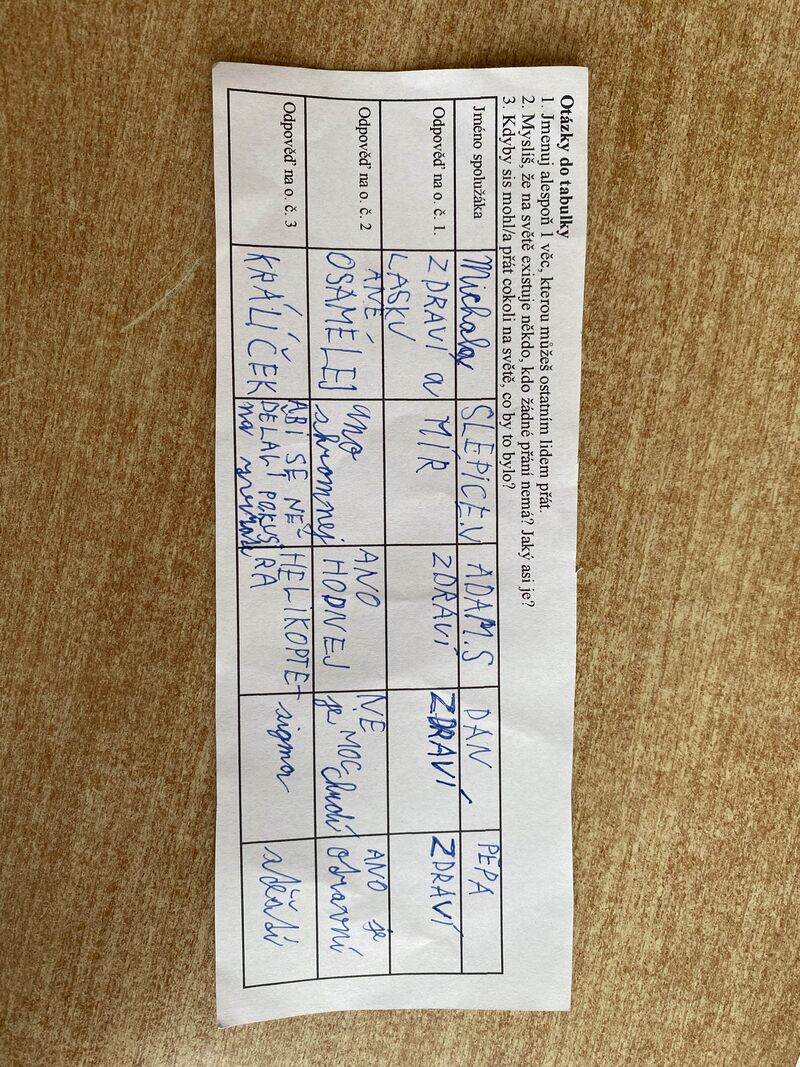 Otázky do tabulky
1. Jmenuj alespoň 1 věc, kterou můžeš ostatním lidem přát.
2. Myslíš, že na světě existuje někdo, kdo žádné přání nemá? Jaký asi je?
3. Kdyby sis mohl/a přát cokoli na světě, co by to bylo?
Jméno spolužáka
Michala
SLEPICE.V
ADAM.S
DAN
PEPA
Odpověď na o. č. 1.
ZDRAVÍ a
LASKU
MÍR
ZDRAVÍ
ZDRAVÍ
ZDRAVÍ
Odpověď na o. č. 2
ANE
OSAMĚLEJ
ano
skromnej
ANO
HODNEJ
NE MOC
je chudí
ANO je
otravní
Odpověď na o. č. 3
KRÁLÍČEK
ABI SE NE
DELALI POKUSI
na
HELIKOPTE-
RA
sigma